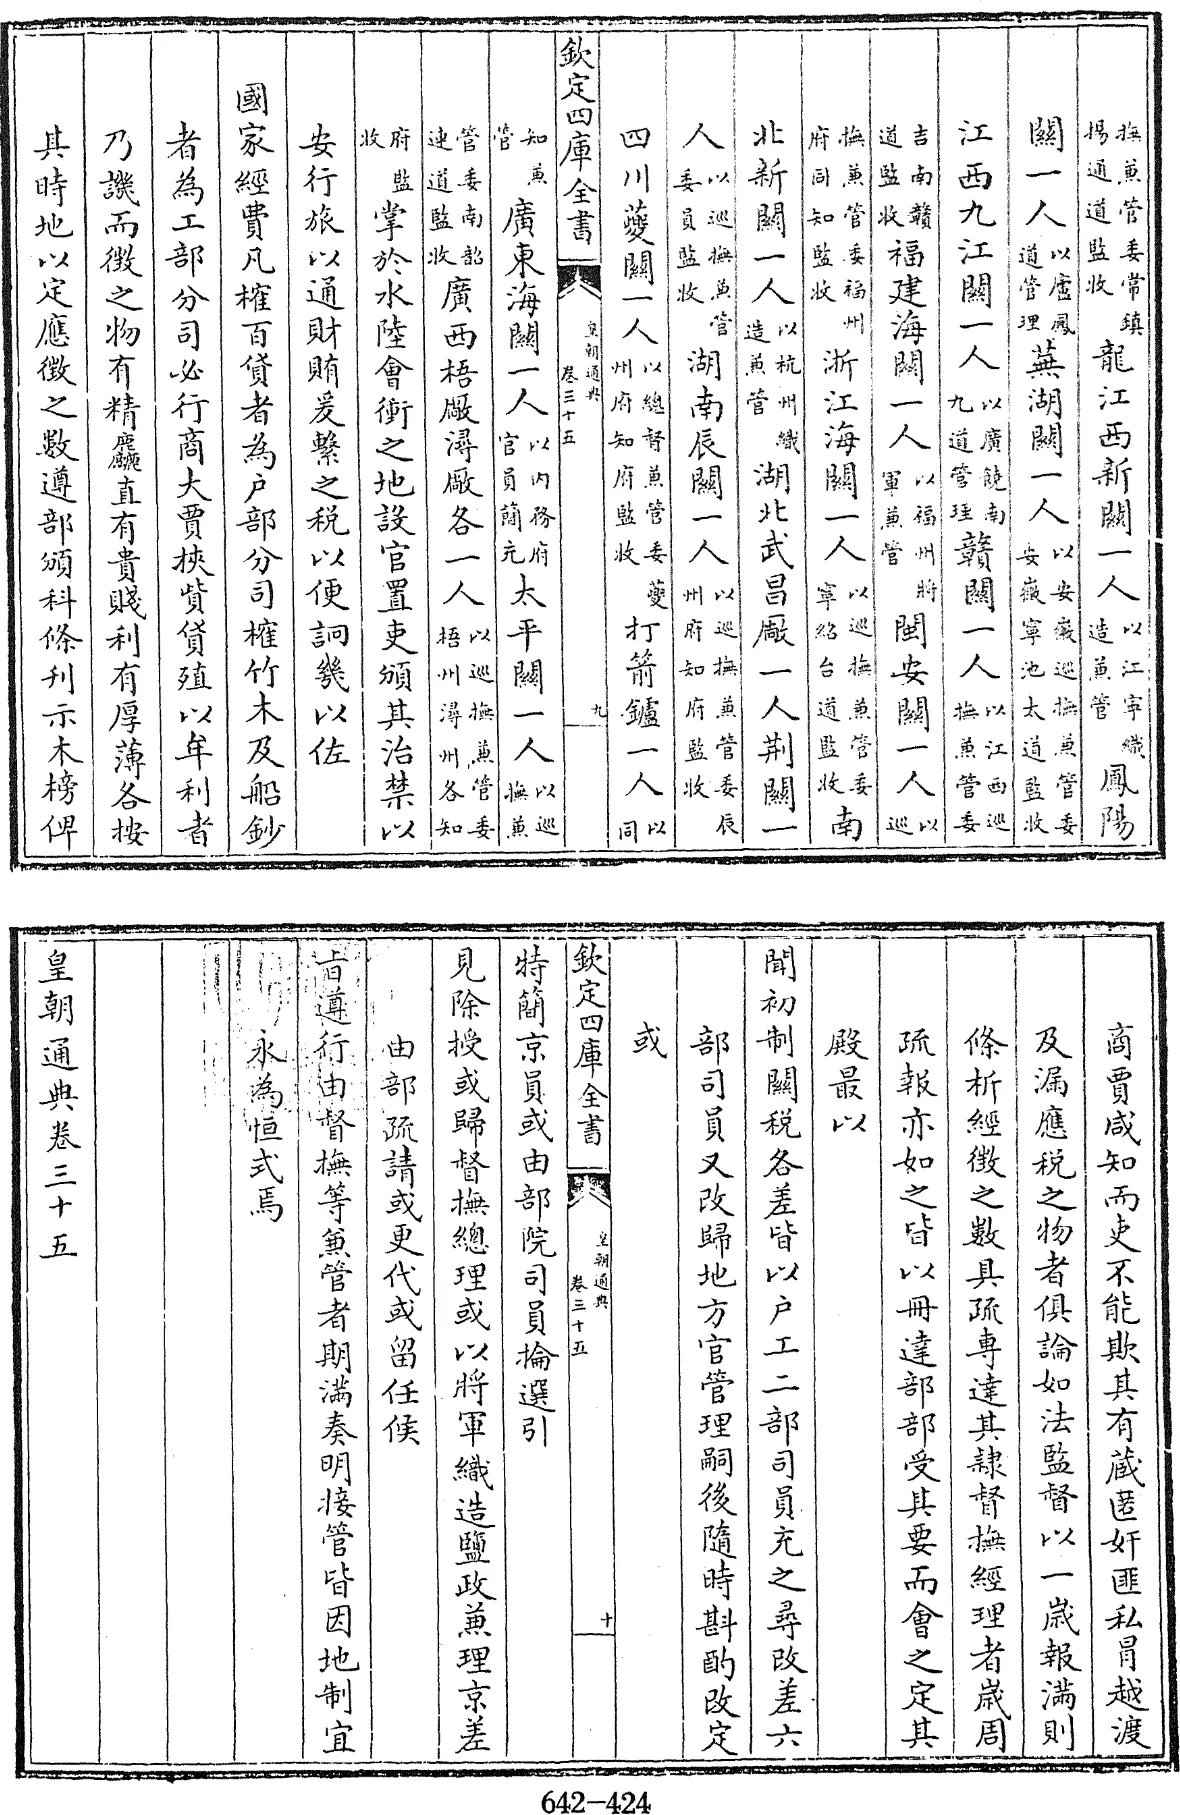 撫兼管委常鎮揚通道監收龍江西新關一人以江寜織造兼管鳳陽
關一人以廬鳳道管理蕪湖關一人以安徽巡撫兼管委安徽寧池太道監收
江西九江關一人以廣饒南九道管理贛關一人以江西巡撫兼管委
吉南贛道監收福建海關一人以福州將軍兼管閩安關一人以巡
撫兼管委福州府同知監收浙江海關一人以巡撫兼管委寧紹台道監收南
北新關一人以杭州織造兼管湖北武昌廠一人荆關一
人以巡撫兼管委員監收湖南辰關一人以巡撫兼管委辰州府知府監收
四川夔關一人以總督兼管委夔州府知府監收打箭鑪一人以同
欽定四庫全書
皇朝通典
卷三十五
九
知兼管廣東海關一人以内務府官員簡充太平關一人以巡撫兼
管委南韶連道監收廣西梧廠潯廠各一人以巡撫兼管委梧州潯州各知
府監收掌於水陸會衝之地設官置吏頒其治禁以
安行旅以通財賄爰繫之税以便訶幾以佐
國家經費凡榷百貨者為户部分司榷竹木及船鈔
者為工部分司必行商大賈挾貲貸殖以牟利者
乃譏而徴之物有精麤直有貴賤利有厚薄各按
其時地以定應徴之數遵部頒科條刋示木榜俾
商賈咸知而吏不能欺其有蔵匿奸匪私冒越渡
及漏應税之物者俱論如法監督以一嵗報滿則
條析經徴之數具疏專達其隸督撫經理者嵗周
疏報亦如之皆以冊達部部受其要而會之定其
殿最以
聞初制關税各差皆以户工二部司員充之尋改差六
部司員又改歸地方官管理嗣後隨時斟酌改定
或
欽定四庫全書
皇朝通典
卷三十五
十
特簡京員或由部院司員掄選引
見除授或歸督撫總理或以將軍織造鹽政兼理京差
由部疏請或更代或留任候
㫖遵行由督撫等兼管者期滿奏明接管皆因地制宜
永為恒式焉
皇朝通典卷三十五
642-424